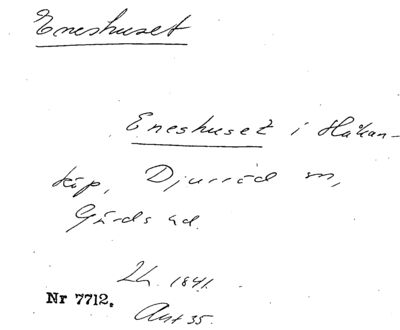 Eneshuset
Eneshuset i Håkan-
köp, Djurröd sn,
Gärds hd.
Lh. 1841.
Nr 7712.
Akt 35.